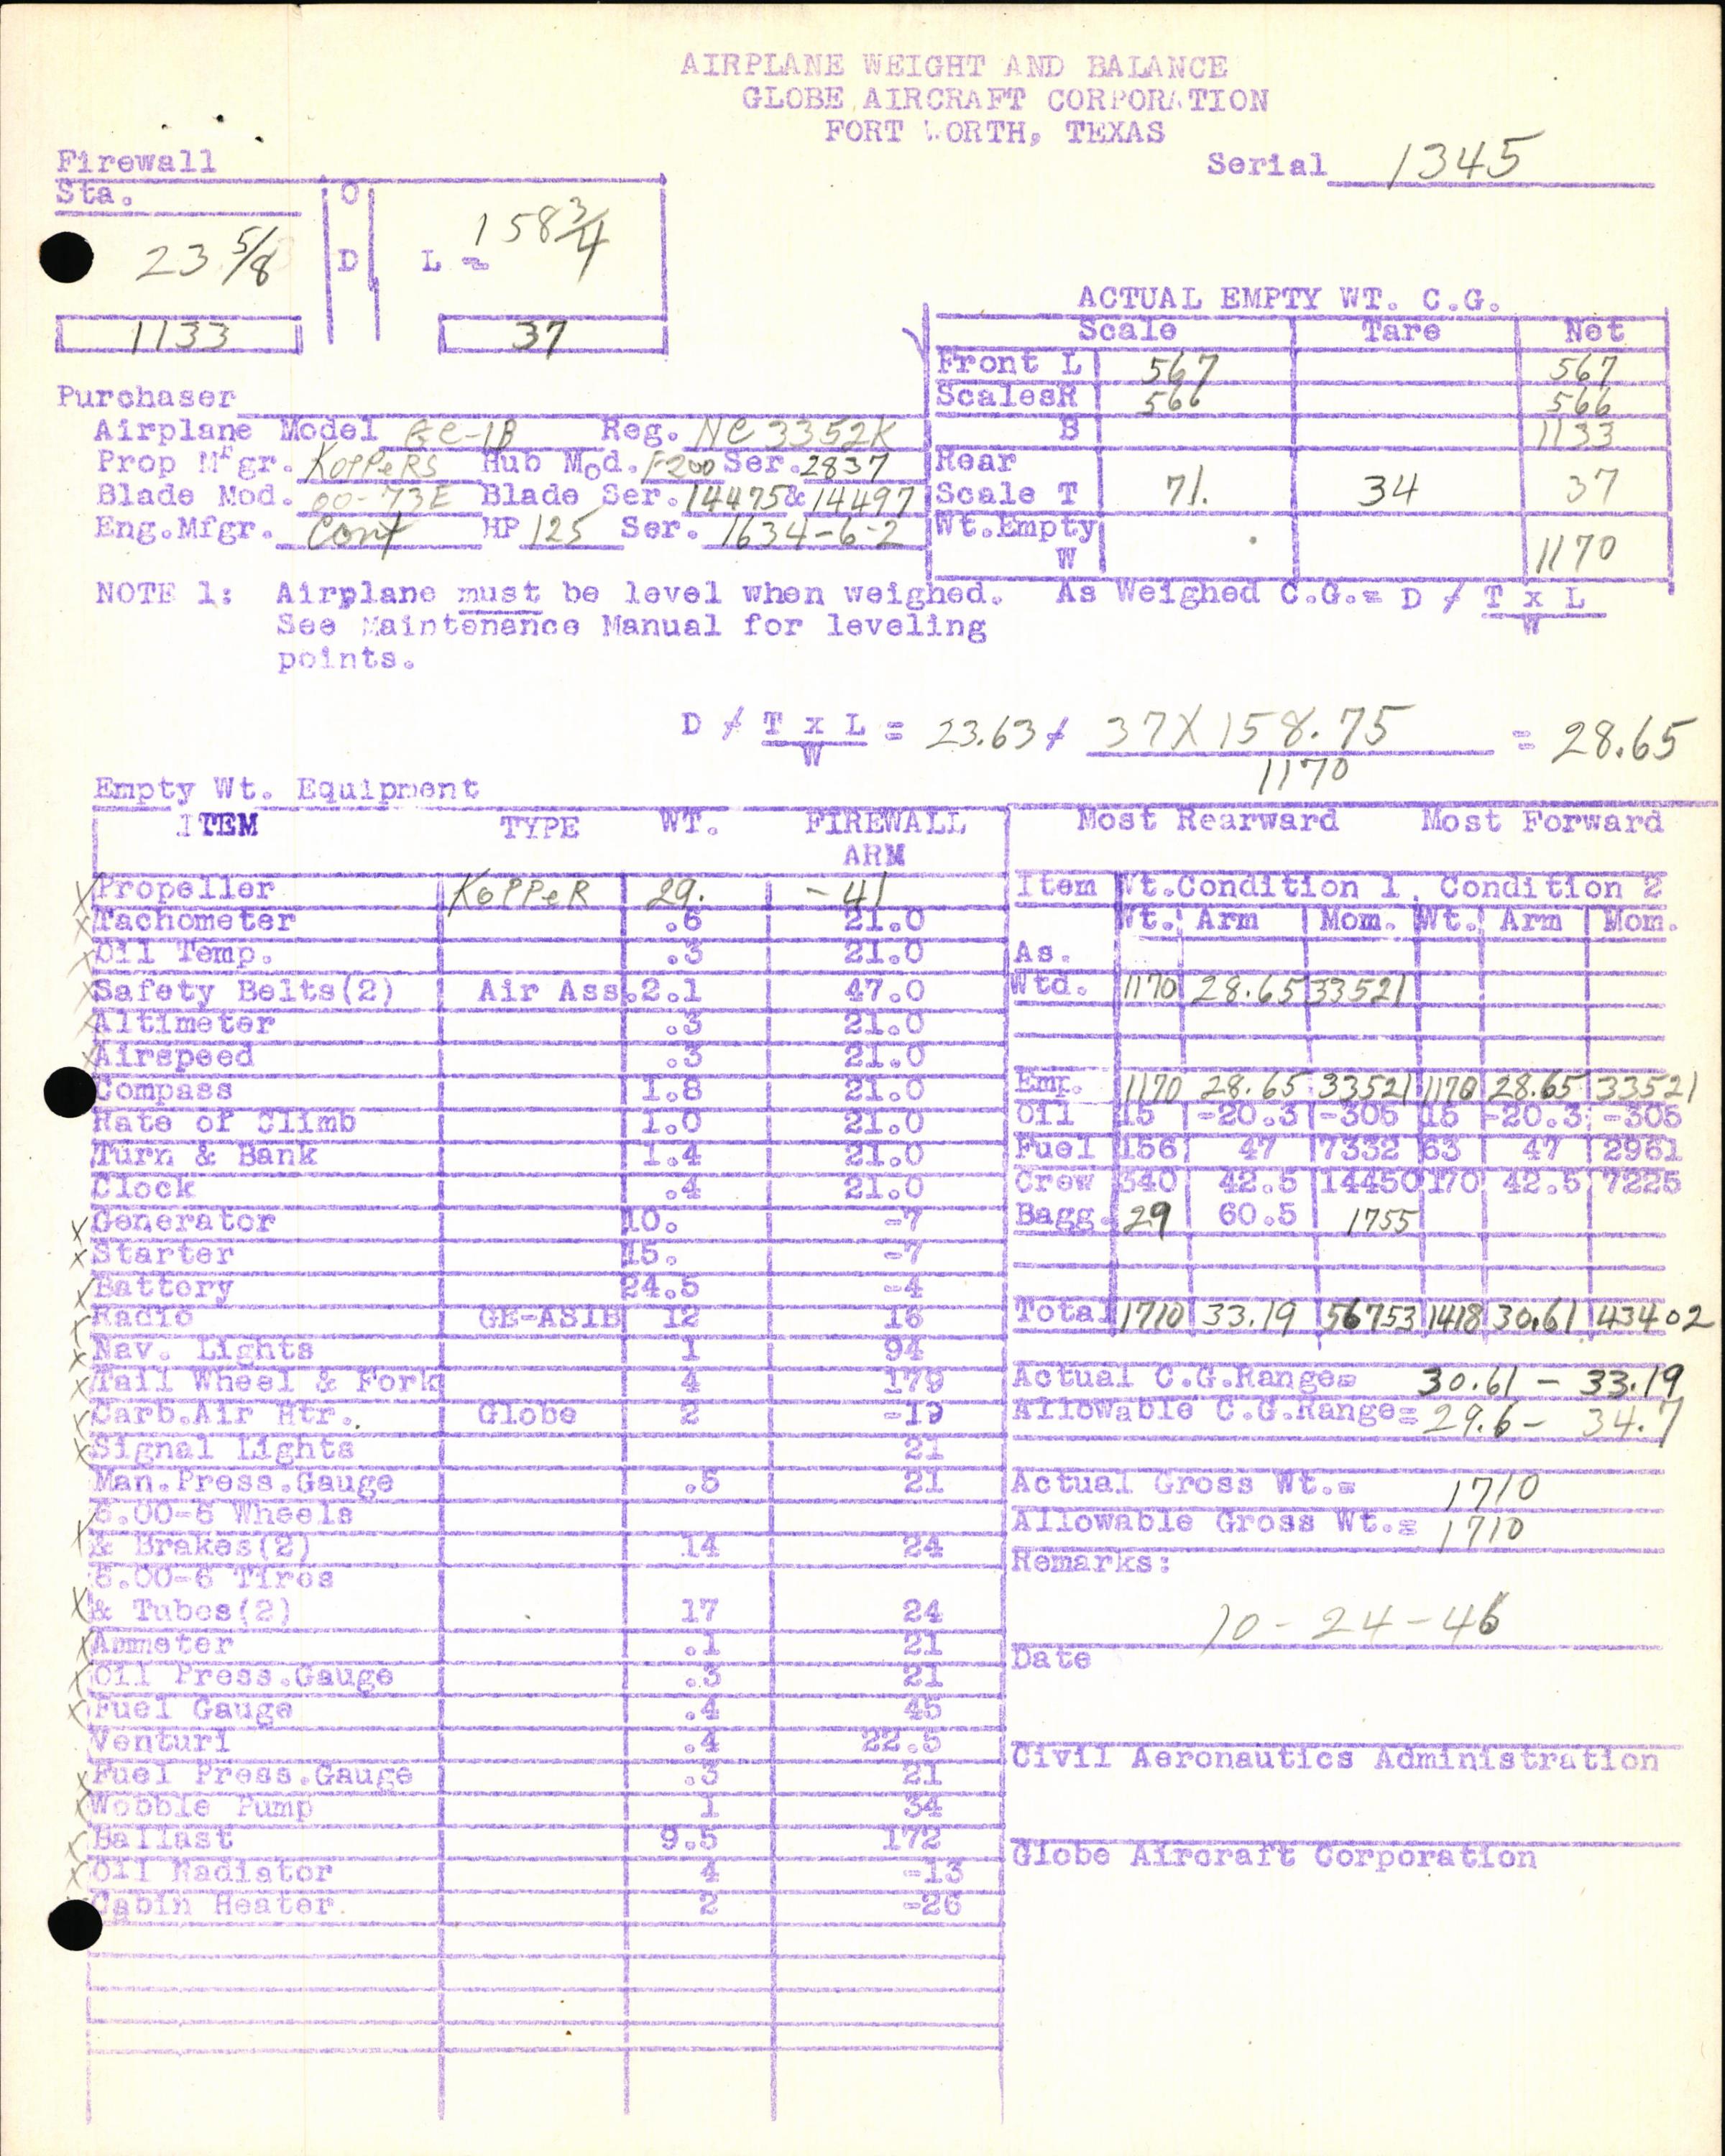 AIRPLANE WEIGHT AND BALANCE
GLOBE AIRCRAFT CORPORATION
FORT WORTH, TEXAS
Serial 1345
Firewall
Sta. O
23 5/8 D L = 158 3/4
1133 37
ACTUAL EMPTY WT. C.G.
Scale Tare Net
Front L 567 567
Scales R 566 566
B 1133
Rear
Scale T 71. 34 37
Wt.Empty
W 1170
Purchaser
Airplane Model GC-1B Reg. NC 3352K
Prop Mfgr. KOPPERS Hub Mod. F200 Ser. 2837
Blade Mod. 00-73E Blade Ser. 14475 & 14497
Eng.Mfgr. Cont HP 125 Ser. 1634-6-2
NOTE 1: Airplane must be level when weighed. As Weighed C.G.= D / T x L
W
See Maintenance Manual for leveling
points.
D / T x L = 23.63 / 37 X 158.75 = 28.65
W 1170
Empty Wt. Equipment
ITEM TYPE WT. FIREWALL
ARM
X Propeller KOPPER 29. -41
X Tachometer .6 21.0
X Oil Temp. .3 21.0
X Safety Belts(2) Air Ass. 2.1 47.0
X Altimeter .3 21.0
X Airspeed .3 21.0
Compass 1.8 21.0
Rate of Climb 1.0 21.0
Turn & Bank 1.4 21.0
Clock .4 21.0
X Generator 10. -7
X Starter 15. -7
X Battery 24.5 -4
X Radio GE-AS1B 12 16
X Nav. Lights 1 94
X Tail Wheel & Fork 4 179
X Carb.Air Htr. Globe 2 -19
X Signal Lights 21
Man.Press.Gauge .5 21
6.00-6 Wheels
X & Brakes(2) 14 24
6.00-6 Tires
X & Tubes(2) 17 24
X Ammeter .1 21
X Oil Press.Gauge .3 21
X Fuel Gauge .4 45
Venturi .4 22.5
X Fuel Press.Gauge .3 21
X Wobble Pump 1 34
X Ballast 9.5 172
X Oil Radiator 4 -13
Cabin Heater 2 -26
Most Rearward Most Forward
Item Wt.Condition 1 Condition 2
Wt. Arm Mom. Wt. Arm Mom.
As.
Wtd. 1170 28.65 33521
Emp. 1170 28.65 33521 1170 28.65 33521
Oil 15 -20.3 -305 15 -20.3 -305
Fuel 156 47 7332 63 47 2961
Crew 340 42.5 14450 170 42.5 7225
Bagg. 29 60.5 1755
Total 1710 33.19 56753 1418 30.61 43402
Actual C.G.Range= 30.61 - 33.19
Allowable C.G.Range= 29.6 - 34.7
Actual Gross Wt.= 1710
Allowable Gross Wt.= 1710
Remarks:
10-24-46
Date
Civil Aeronautics Administration
Globe Aircraft Corporation